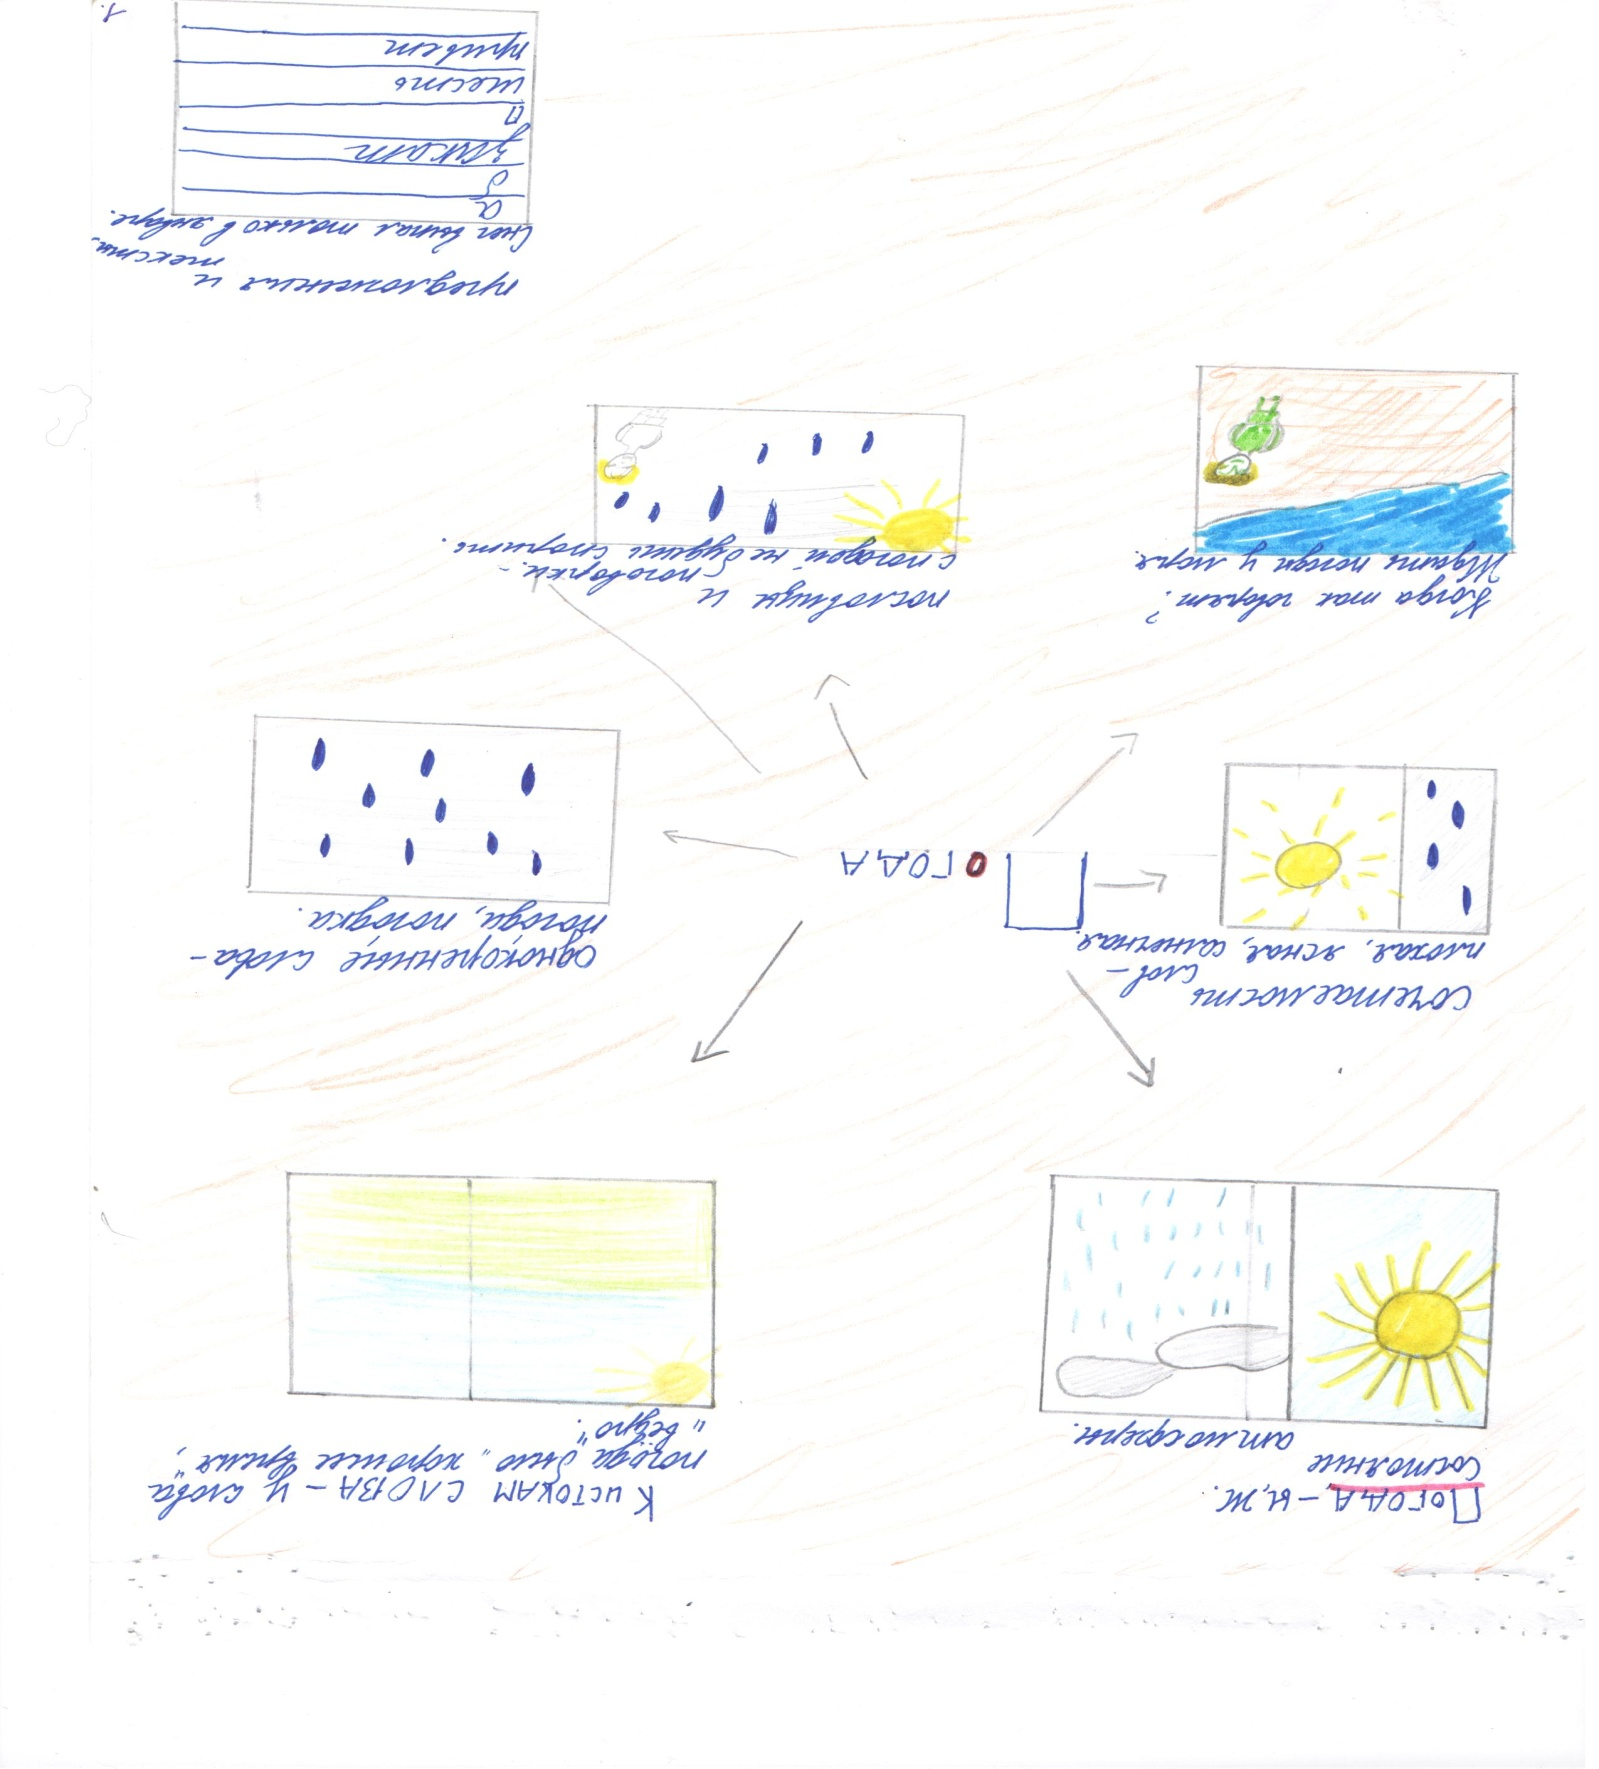 ПОГОДА – И, Ж.
состояние
атмосферы.
К ИСТОКАМ СЛОВА – У слова
„погода" было „хорошее время",
„вёдро".
Сочетаемость
слов –
плохая, ясная, солнечная.
ПОГОДА
Однокоренные слова –
Погода, погодка.
Когда так говорят?
Ждать погоды у моря.
пословицы и
поговорки. –
С погодой не будешь спорить.
предложения и
тексты.
Снег выпал только в январе.
а
б
закат
п
шесть
привет
1.